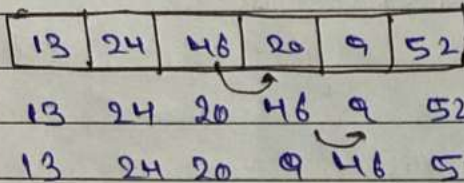 13 24 46 20 9 52
13 24 20 46 9 52
13 24 20 9 46 5